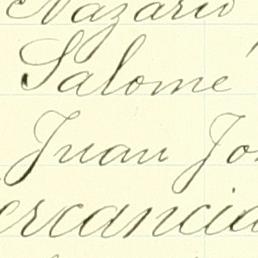 Nazario
Salomé
Juan Jo
ercancia